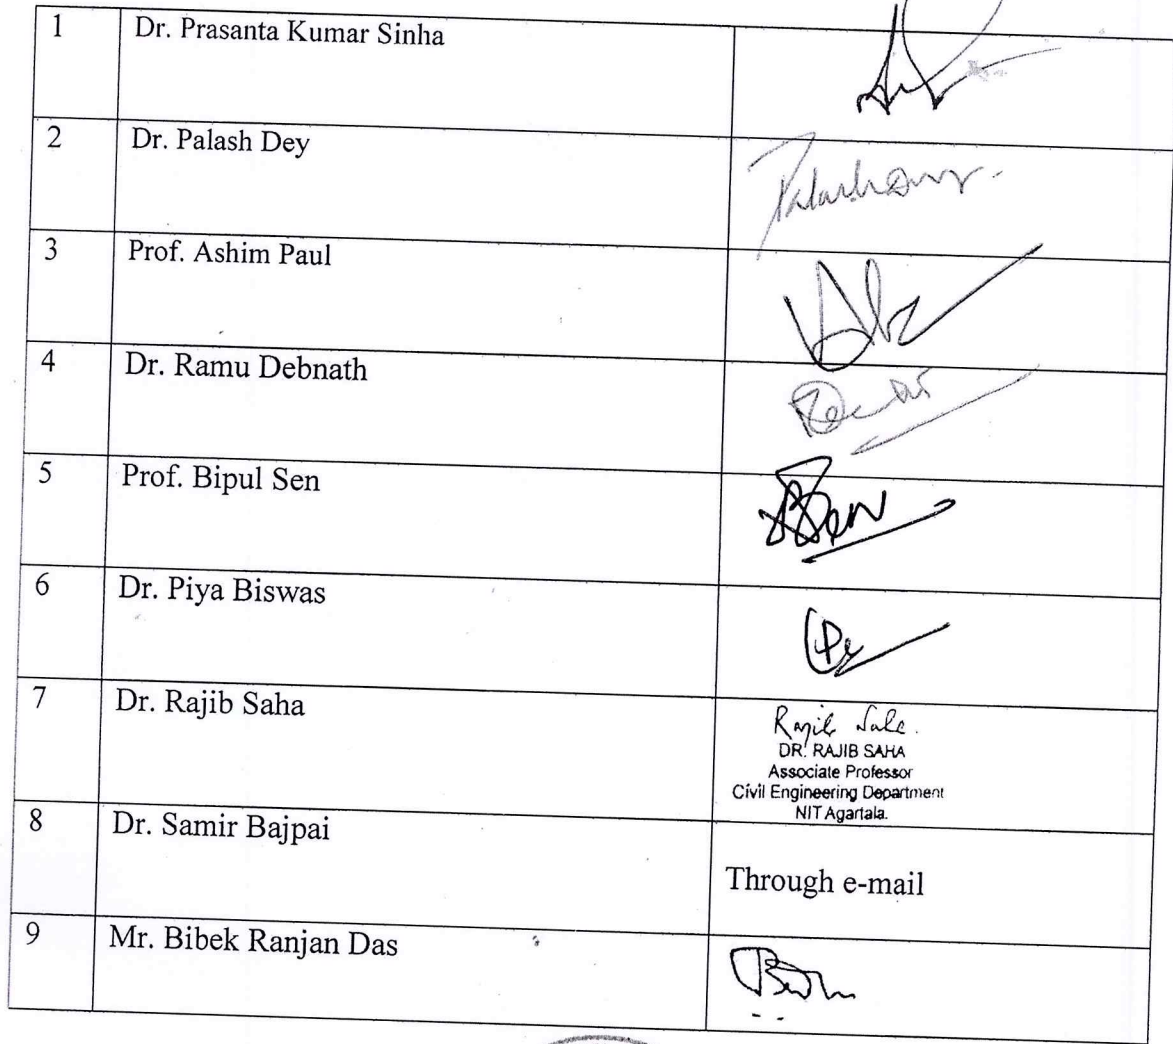 1 Dr. Prasanta Kumar Sinha
2 Dr. Palash Dey
3 Prof. Ashim Paul
4 Dr. Ramu Debnath
5 Prof. Bipul Sen
6 Dr. Piya Biswas
7 Dr. Rajib Saha
Rajib Saha.
DR. RAJIB SAHA
Associate Professor
Civil Engineering Department
NIT Agartala.
8 Dr. Samir Bajpai
Through e-mail
9 Mr. Bibek Ranjan Das